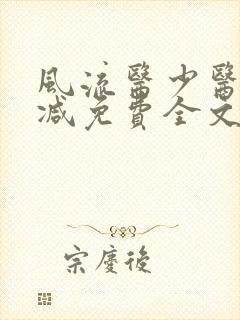 風流醫少醫
減免費全文
宗慶後